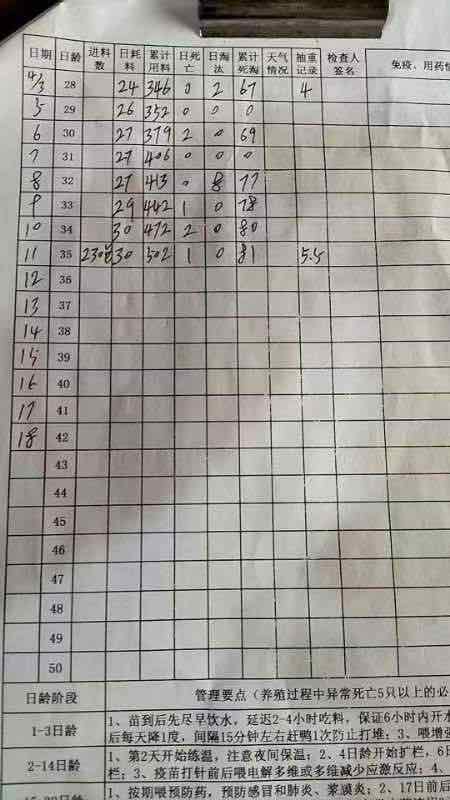 日期 日龄 进料数 日耗料 累计用料 日死亡 日淘汰 累计死淘 天气情况 抽重记录 检查人签名 免疫、用药情
4/3 28 24 346 0 2 67 4
5 29 26 352 0 0 0
6 30 27 379 2 0 69
7 31 27 406 0 0 0
8 32 27 413 0 8 77
9 33 29 442 1 0 78
10 34 30 472 2 0 80
11 35 230 30 502 1 0 81 5.5
12 36
13 37
14 38
15 39
16 40
17 41
18 42
43
44
45
46
47
48
49
50
日龄阶段 管理要点（养殖过程中异常死亡5只以上的必
1-3日龄 1、苗到后先尽早饮水，延迟2-4小时吃料，保证6小时内开水
后每天降1度，间隔15分钟左右赶鸭1次防止打堆；3、喂增强
2-14日龄 1、第2天开始练温，注意夜间保温；2、4日龄开始扩栏，6日
栏；3、疫苗打针前后喂电解多维或多维减少应激反应；4、
1、按期喂预防药，预防感冒和肺炎、浆膜炎；2、17日前后